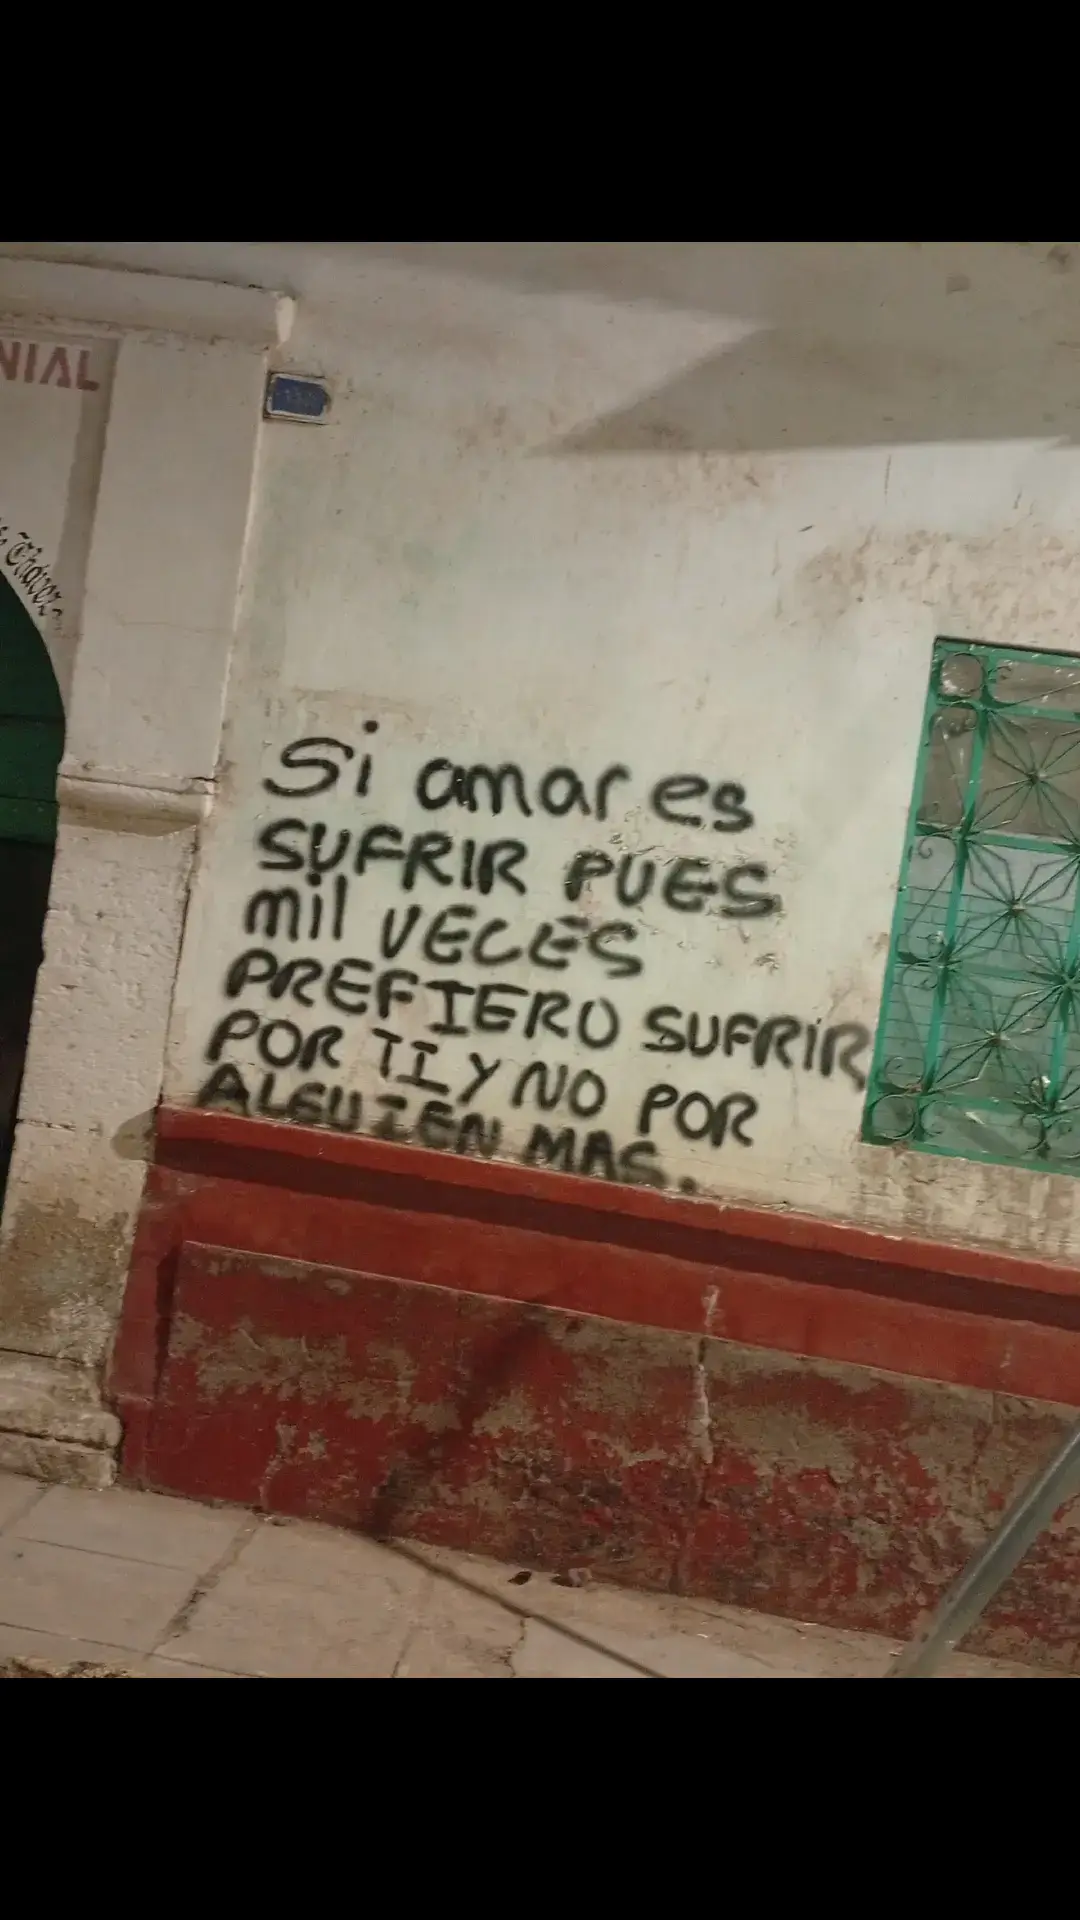 NIAL
Chávez
Si amar es
SUFRIR PUES
mil VECES
PREFIERO SUFRIR
POR TI Y NO POR
ALGUIEN MAS.